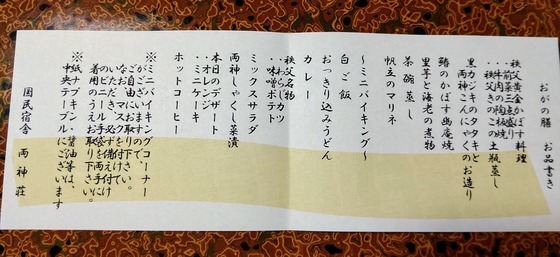 おがの膳　お品書き
・秩父黄金かぼす料理
・前菜三点盛り
・牛肉の陶板焼
・秩父きのこの土瓶蒸し
黒カジキのタタキと
両神こんにゃくのお造り
鰆のかぼす幽庵焼
里芋と海老の煮物
茶碗蒸し
帆立のマリネ
～ミニバイキング～
白ご飯
おっきり込みうどん
カレー
秩父名物
・わらじカツ
・味噌ポテト
ミックスサラダ
両神しゃくし菜漬
本日のデザート
・オレンジ
・ミニケーキ
ホットコーヒー
※ミニバイキングコーナー
がございますので、
ご自由にお取り下さい。
なおマスクを付けて
いただき、必ず備え付け
のビニール手袋を両手に
着用のうえお取り下さい。
※紙ナプキン・醤油等は、
中央テーブルにございます
国民宿舎　両神荘